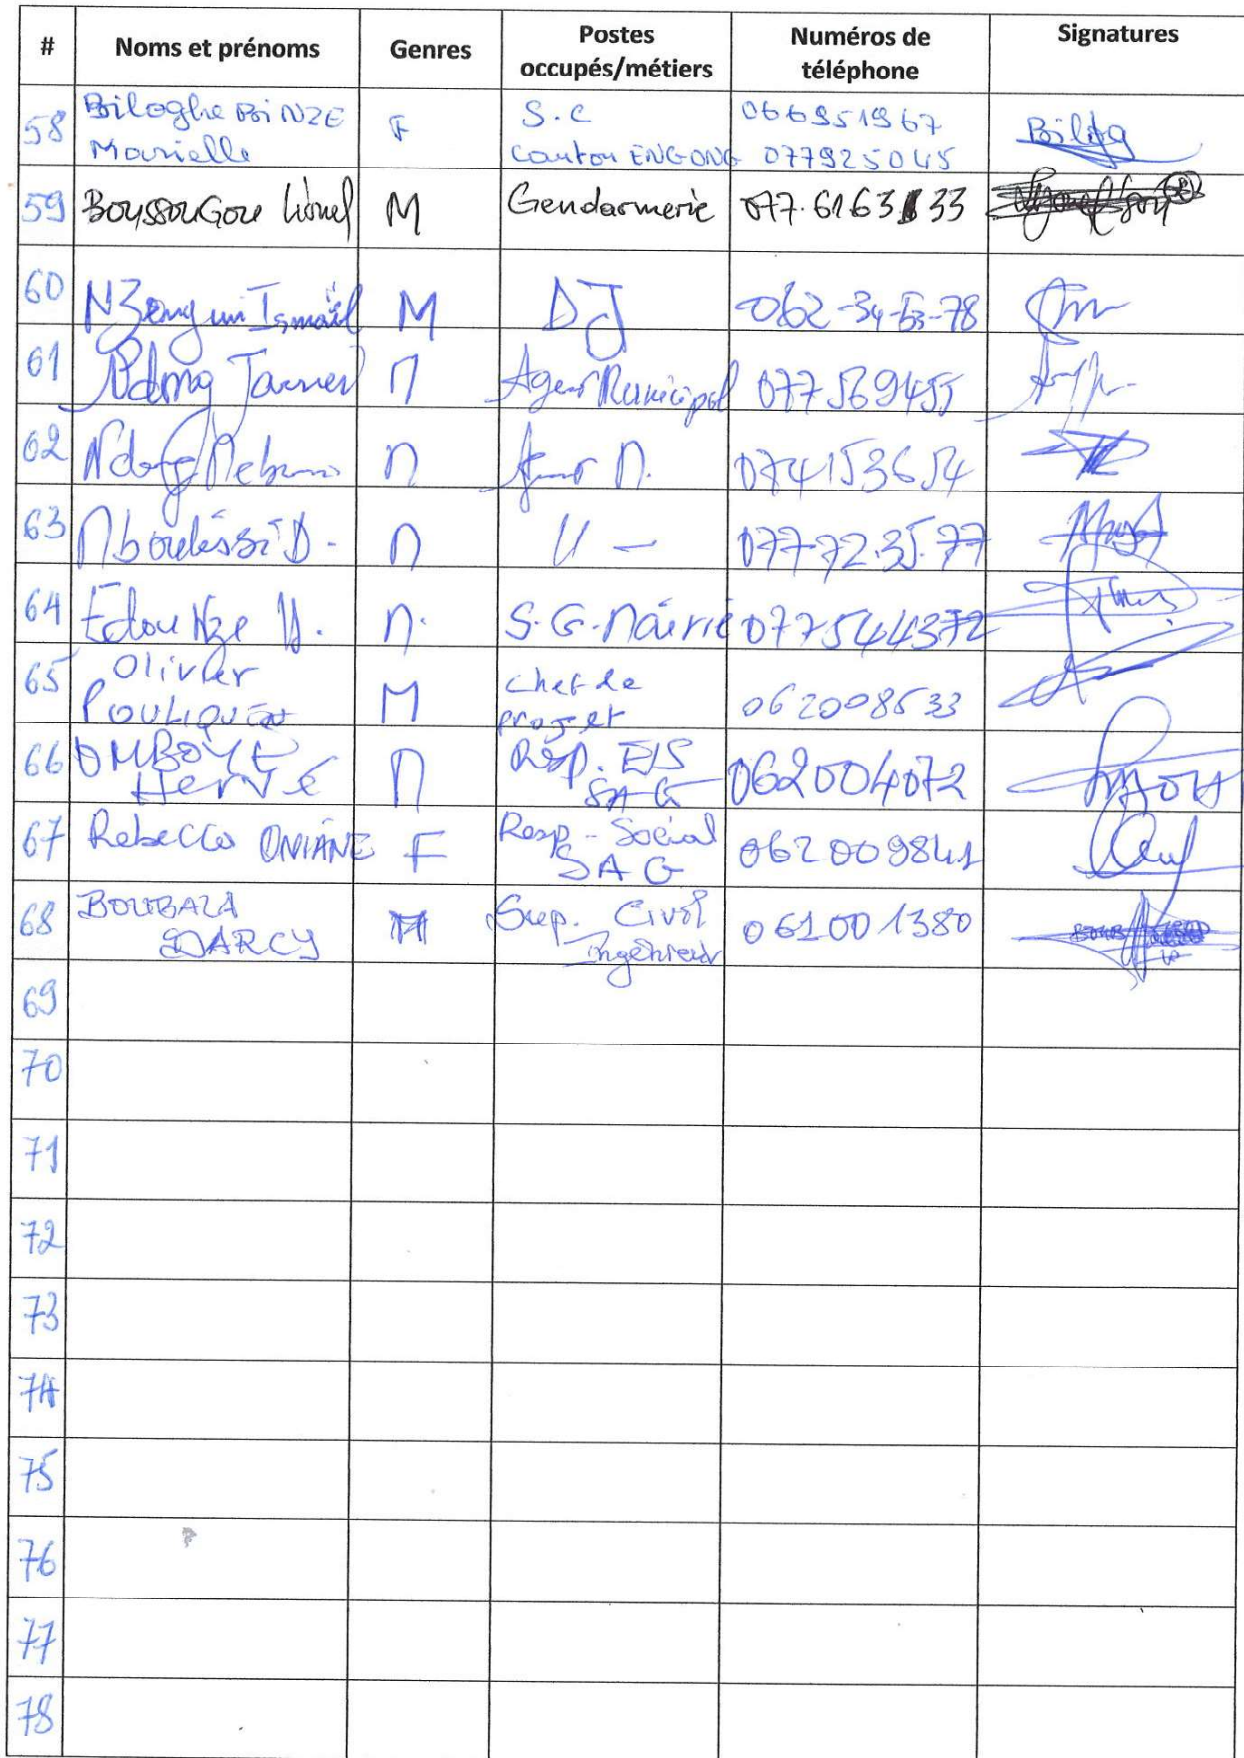 # Noms et prénoms Genres Postes occupés/métiers Numéros de téléphone Signatures
58 Biloghe BiNZE Marielle F S.C Canton ENGONG 066951967 077925045
59 BOUSSOUGOU Lionel M Gendarmerie 077.6163 33
60 NZengui Ismaël M DJ 062-34-53-78
61 Ndong M Agent Municipal 077569455
62 Ndong M Agent M. 074153654
63 Mboulissi D. M 11 — 077-72.35.77
64 Edou Nze M. S.G. Mairie 077544372
65 Olivier POULIQUEN M chef de projet 062008533
66 OMBOYE HERVÉ M Resp. EIS SAG 062004072
67 Rebecca ONIANE F Resp - Social SAG 062009841
68 BOUBALA DARCY M Sup. Civil Ingénieur 061001380
69
70
71
72
73
74
75
76
77
78